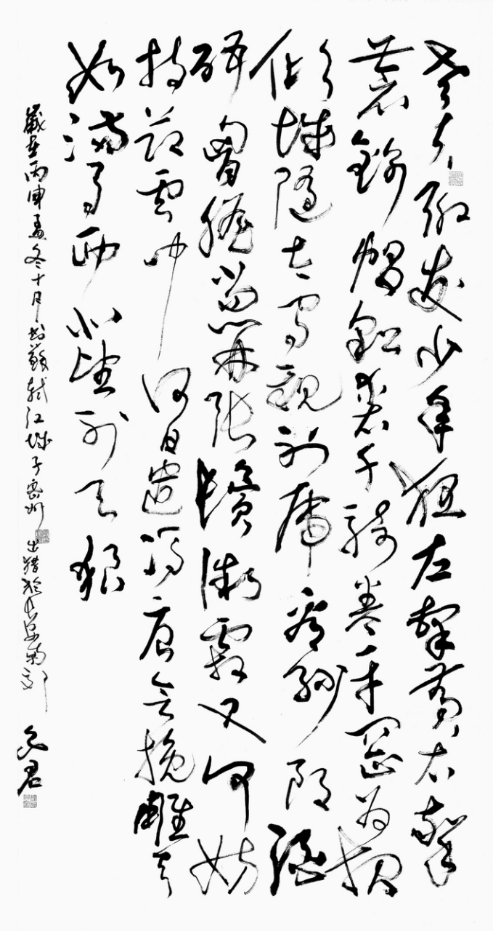 老夫聊發少年狂左牽黃右擎
蒼錦帽貂裘千騎卷平岡為報
傾城隨太守親射虎看孫郎酒
酣胸膽尚開張鬢微霜又何妨
持節雲中何日遣馮唐會挽雕弓
如滿月西北望射天狼
歲在丙申孟冬十月書蘇軾江城子密州出獵於南郊